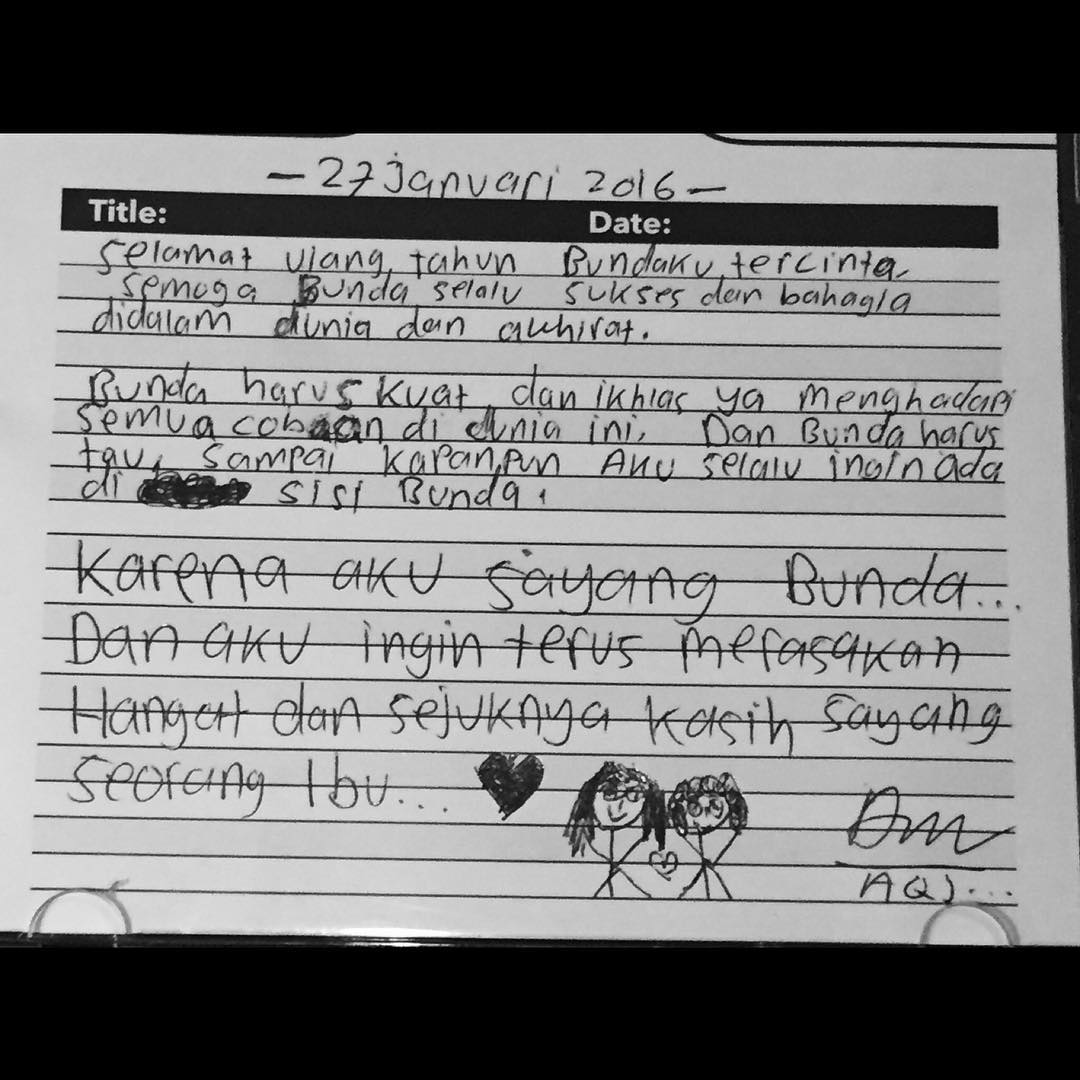 - 27 Januari 2016 -
Title: Date:
Selamat ulang tahun Bundaku tercinta.
Semoga Bunda selalu sukses dan bahagia
didalam dunia dan akhirat.
Bunda harus kuat dan ikhlas ya menghadapi
semua cobaan di dunia ini. Dan Bunda harus
tau, sampai kapanpun Aku selalu ingin ada
di sisi Bunda.
Karena aku sayang Bunda...
Dan aku ingin terus merasakan
Hangat dan sejuknya kasih sayang
seorang Ibu...